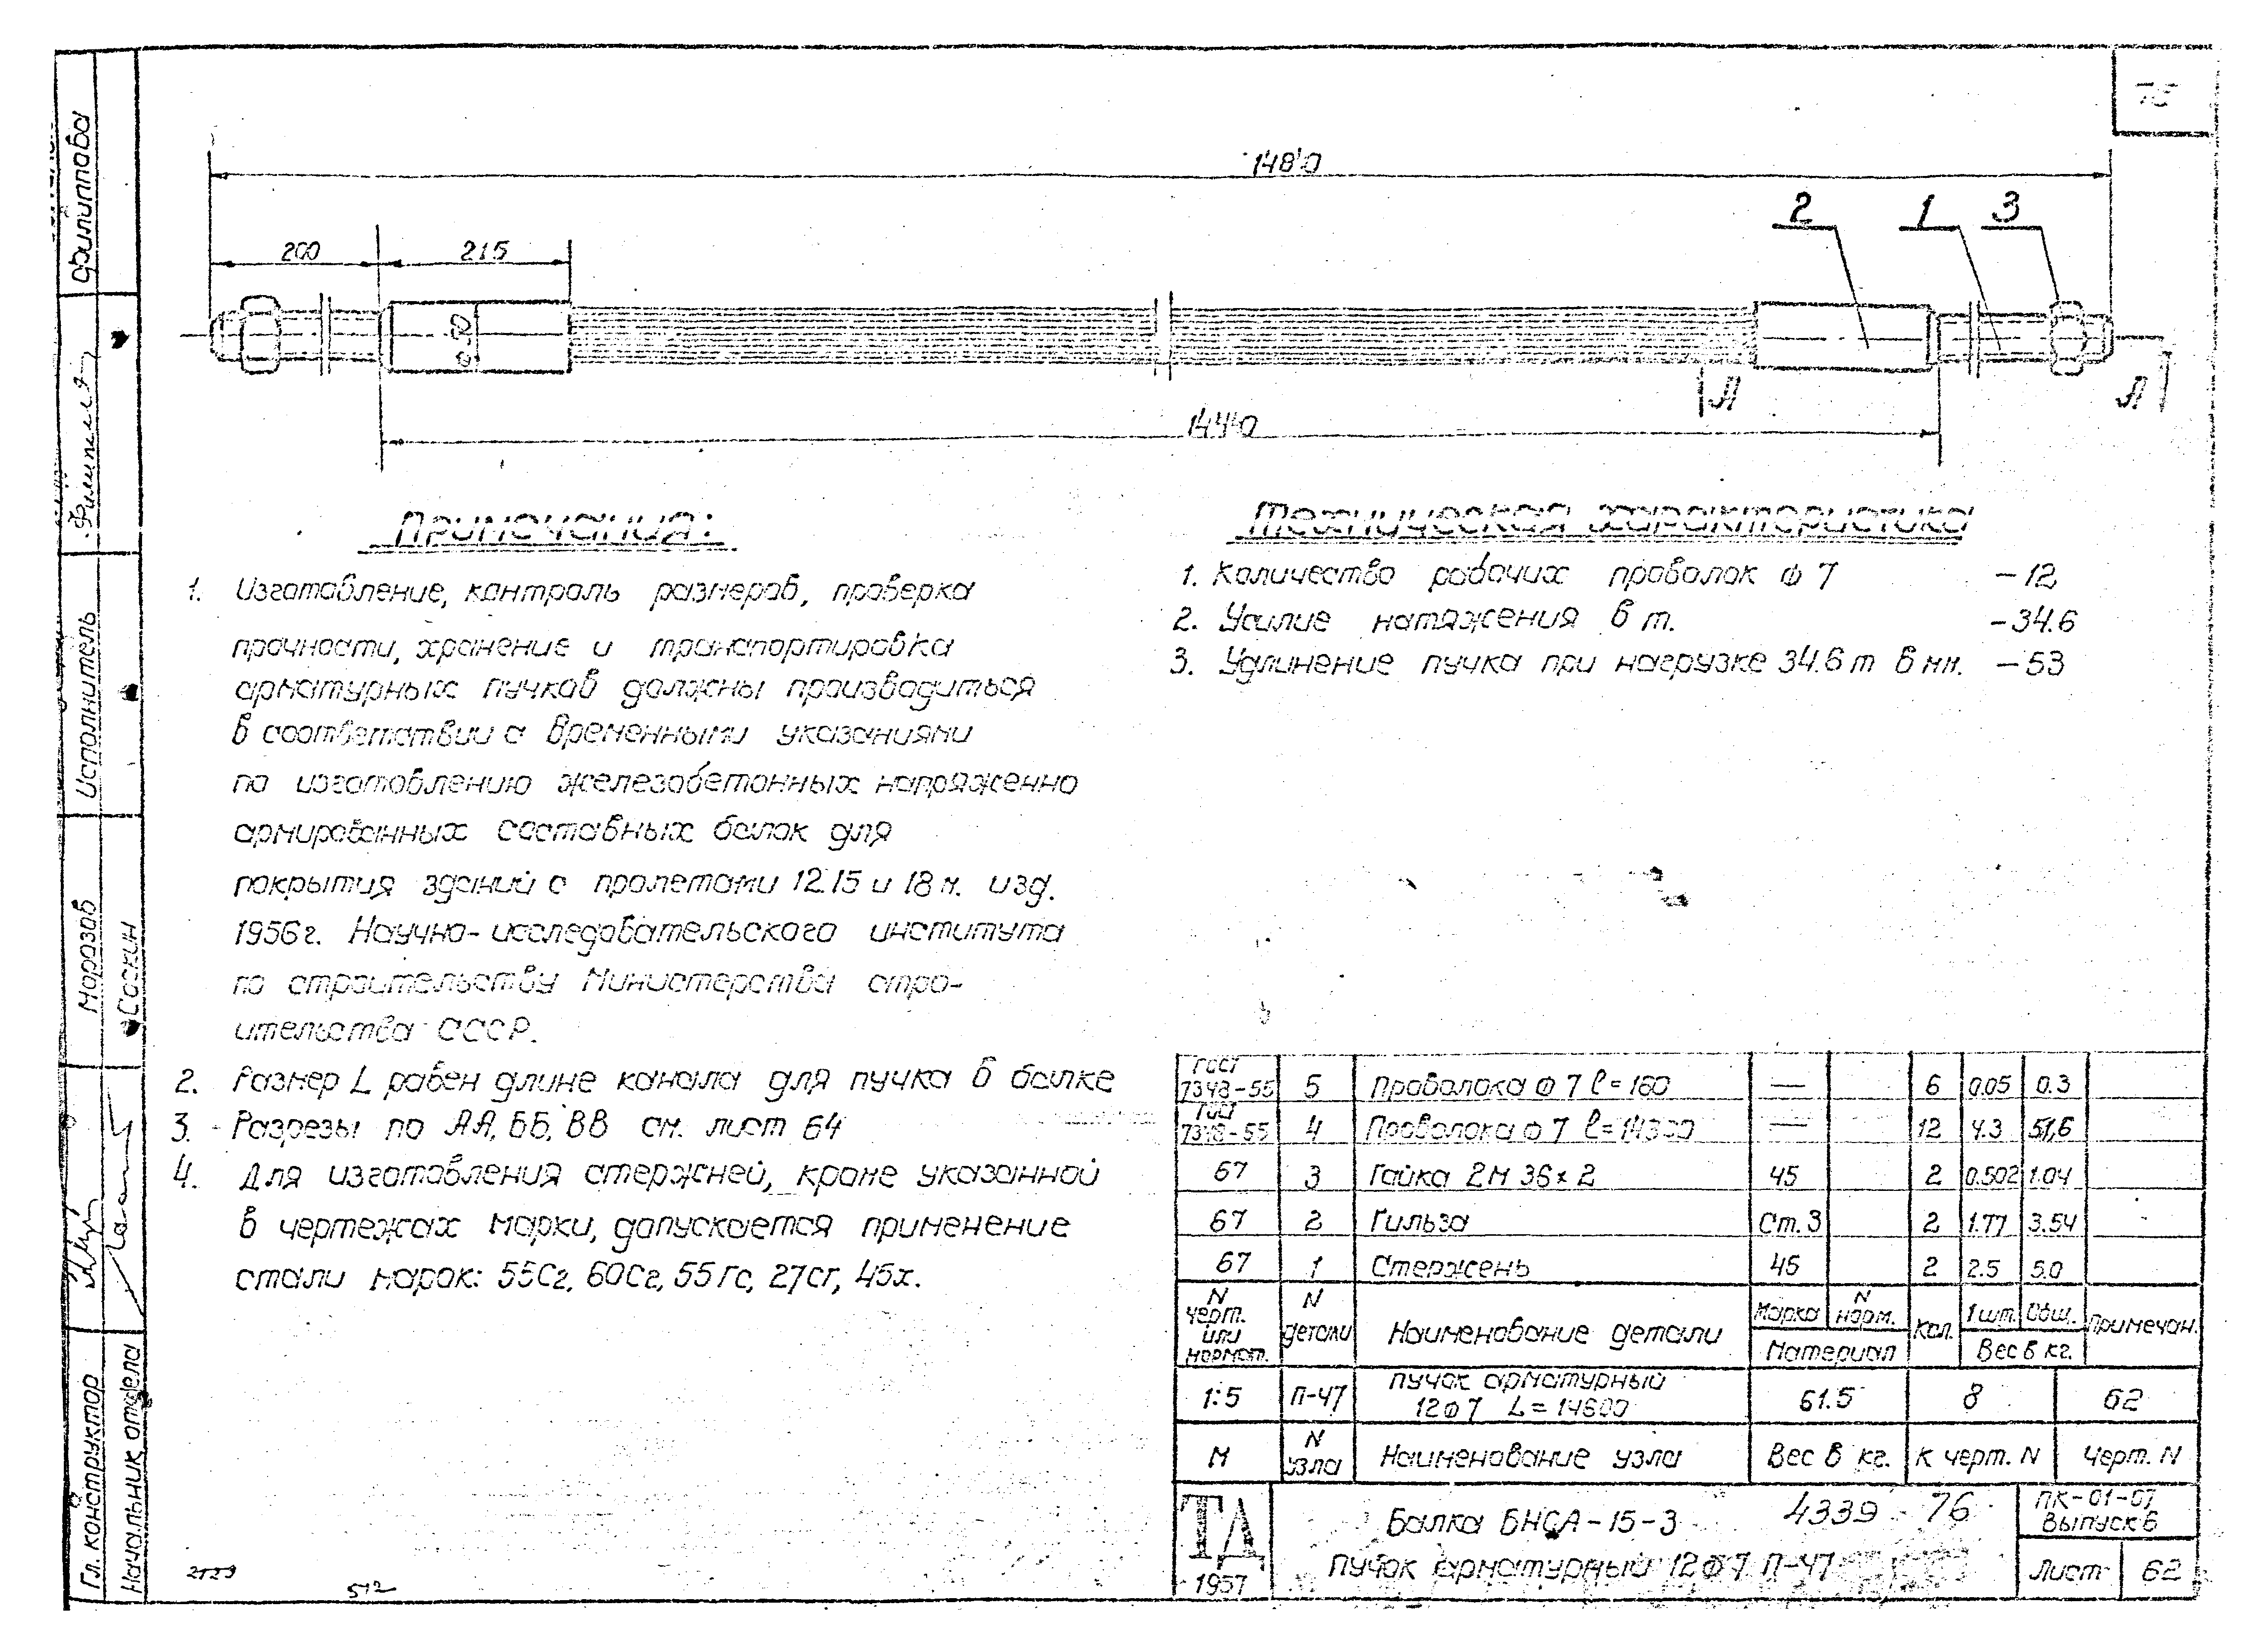 148'0
200
215
ø 50
2
1
3
144'0
Л
Л
Примечания:
1. Изготовление, контроль размеров, проверка
прочности, хранение и транспортировка
арматурных пучков должны производиться
в соответствии с временными указаниями
по изготовлению железобетонных напряженно
армированных составных балок для
покрытия зданий с пролетами 12.15 и 18 м. изд.
1956 г. Научно-исследовательского института
по строительству Министерства стро-
ительства СССР.
2. Размер L равен длине канала для пучка в балке
3. Разрезы по АА, ББ, ВВ см. лист 64
4. Для изготовления стержней, кроме указанной
в чертежах марки, допускается применение
стали марок: 55Сг, 60Сг, 55Гс, 27сг, 45х.
Техническая характеристика
1. Количество рабочих проволок ф 7 – 12
2. Усилие натяжения в т. – 34.6
3. Удлинение пучка при нагрузке 34.6 т в мм. – 53
ГОСТ 7348-55 5 Проволока ф 7 l = 160 — 6 0.05 0.3
ГОСТ 7348-55 4 Проволока ф 7 l = 14300 — 12 4.3 51,6
67 3 Гайка 2М 36 x 2 45 2 0.502 1.04
67 2 Гильза Ст. 3 2 1.77 3.54
67 1 Стержень 45 2 2.5 5.0
N черт. или нормат. N детали Наименование детали Марка N норм. Материал Кол. 1 шт. Общ. Вес в кг. Примечан.
1:5 П-47 Пучок арматурный 12ф7 L = 14600 61.5 8 62
М N узла Наименование узла Вес в кг. К черт. N Черт. N
ТД 1957
Балка БНСА-15-3 4339 - 76
Пучок арматурный 12ф7 П-47
ПК-01-07
Выпуск 6
Лист 62
Филиппова
Исполнитель
Морозов
Соскин
Гл. конструктор
Начальник отдела
512